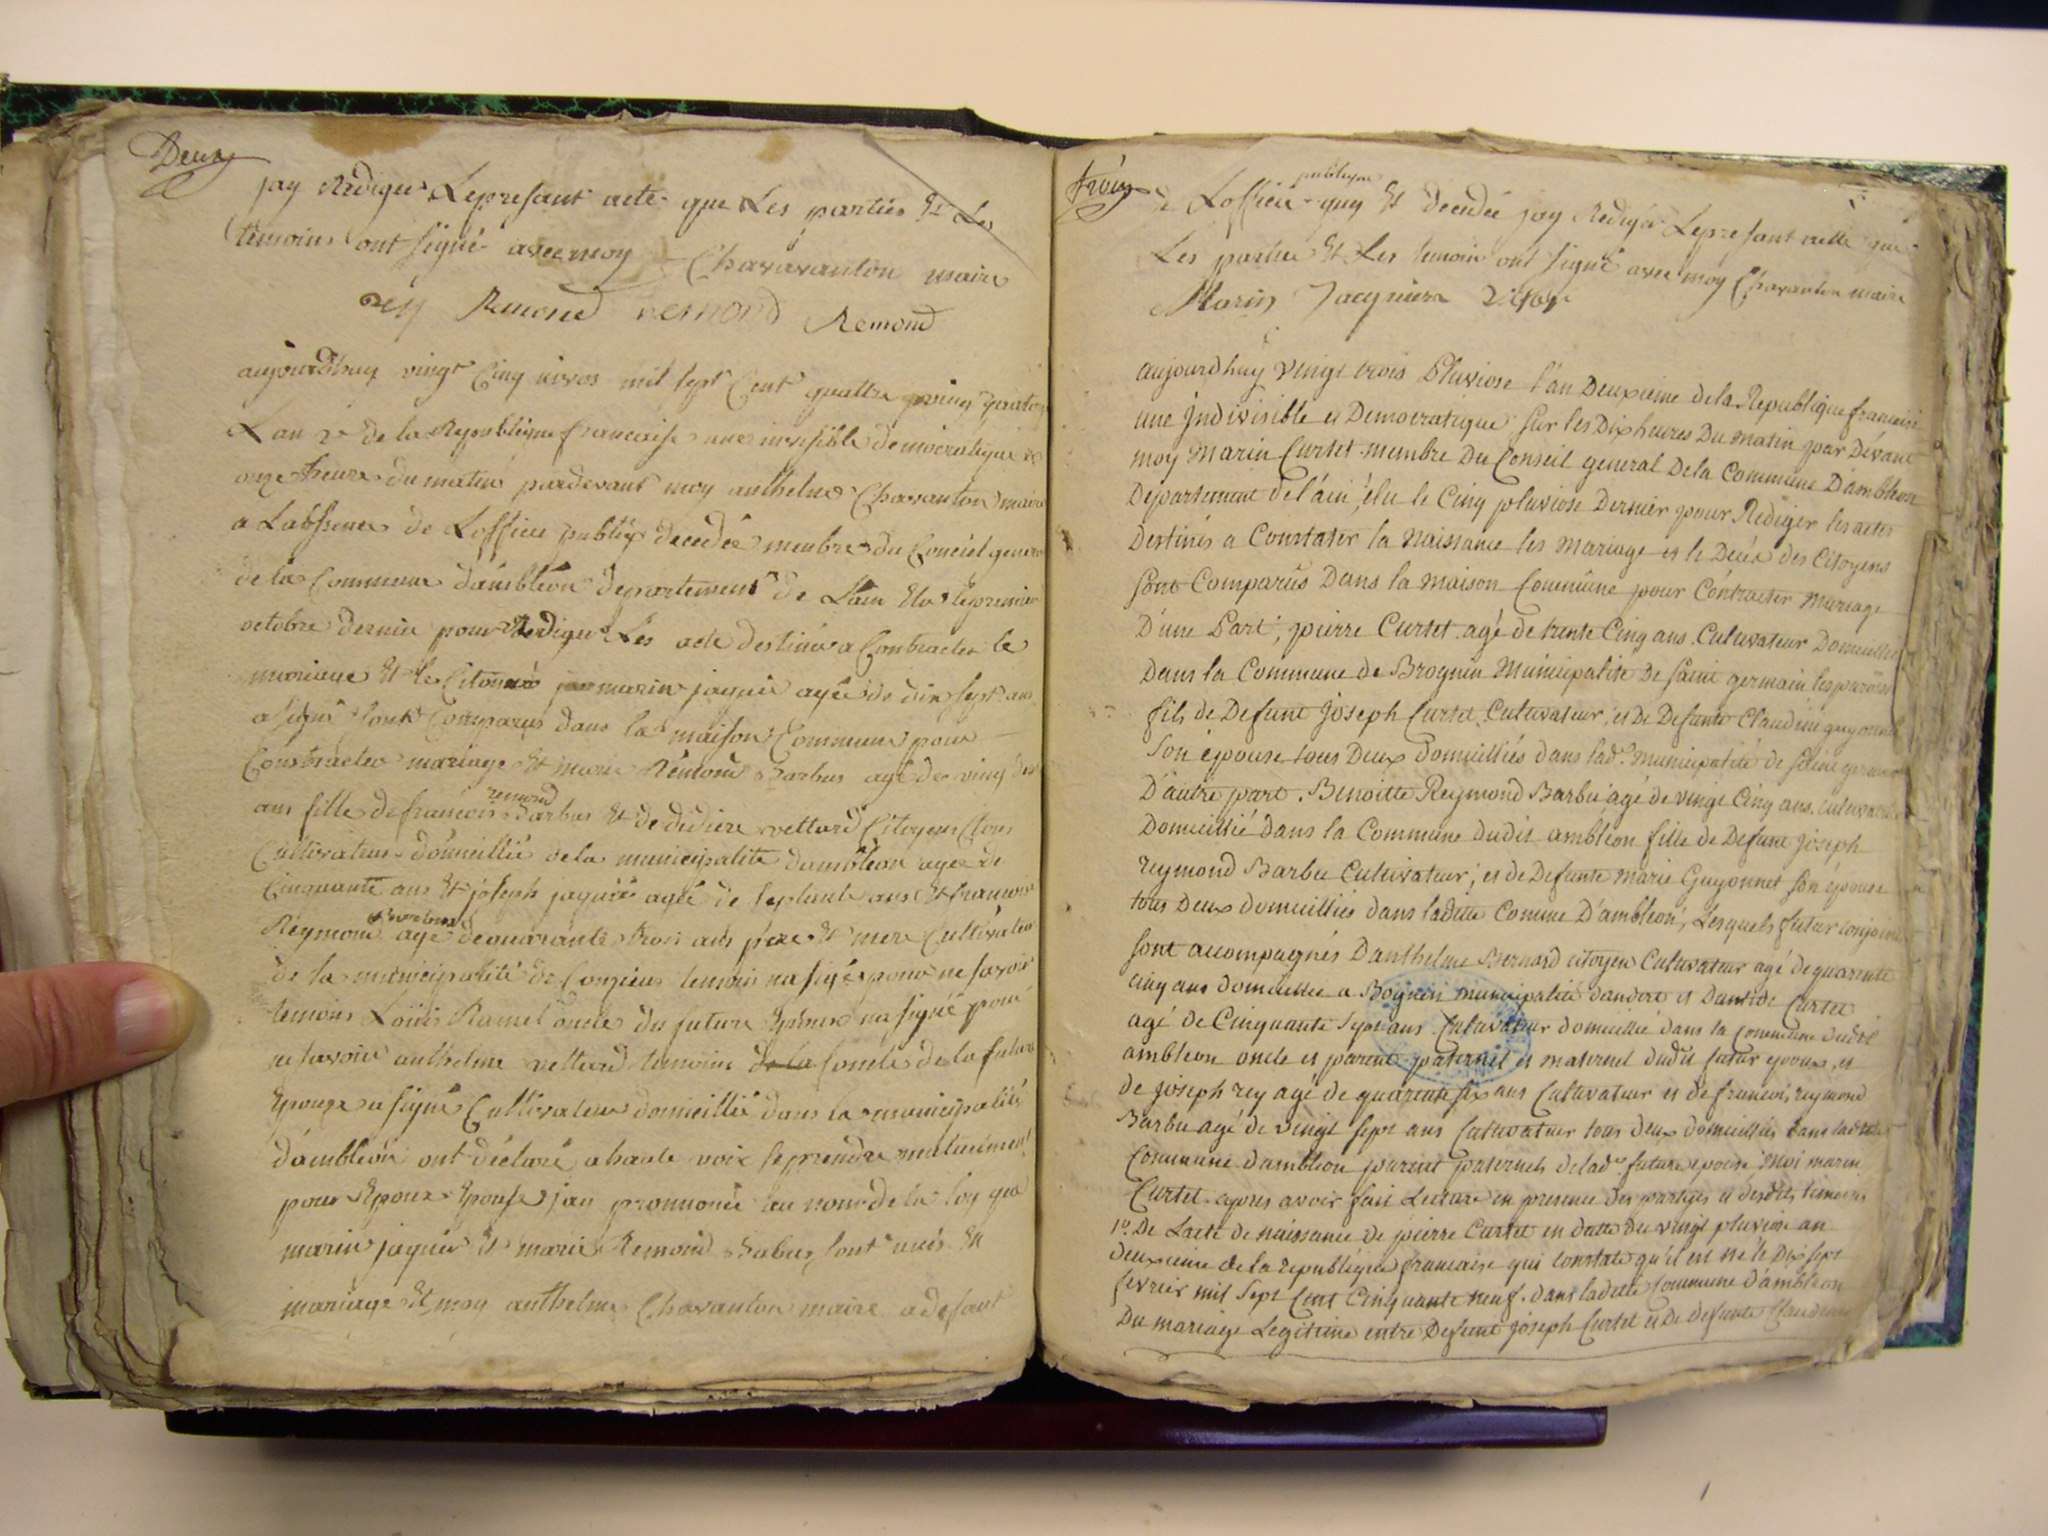 Deux
jay Rediger Lepresant acte que Les parties Et Les
temoins ont signé avec moy Chavavanton maire
Rey Remond remond Remond
aujourdhuy vingt Cinq nivos mil sept Cent quattre vving quator
Lan 2e de la Republique francaise une invisible democratique
onze heure du matin pardevant moy anthelme Chavanton maire
a Labssence de Lofficie publiq decedée membre du Conciel genera
de la Commune dambléon departement de Lain Elu lepremier
octobre dernie pour Redigér Les acte destinér a Contracter le
mariage Et le Citoyen marin jaquie agée de dix sept ans
a signé sont Comparus dans la maison Commune pour
Constracter mariage Et marie Rémond Barbus agé de ving
ans fille de francois remond Barbus Et de didiere vettard Citoyens
Cultivateur domicillié de la municipalite dambléon agée de
Cinquante ans Et joseph jaquie agée de septente ans Et francoise
Réymond agé de quarante trois ans pere Et mere Cultivateur
de la municipalité de Conzieu temoin na signé pour ne savoir
temoins Loüis Ramel oncle du future Epoux na signé pour
ne savoir anthelme vettard temoins de la Comté de la future
Epouze a signé Cultivateur domicillié dans la municipalité
dámbléon ont déclaré a haute voix se prendre mutuément
pour Epoux Epouse jay pronnoncé au nom de la loy que
marin jaquie Et marie Remond Babus sont unis En
mariage Et moy anthelme Chavanton maire a defaut
trois
de Lofficié publique quy Et decedée jay Redigér Lepresant acte que
Les partie Et Les temoin ont signé avec moy Chavanton maire
Marin Jacquier
aujourdhuy vingt trois Pluviose l'an Deuxieme dela Republique francaise
une Jndivisible et Democratique sur les Dix heures Du matin par Dévant
moy Marin Curtet membre Du Conseil general Dela Commune D'ambléon
Departement de l'ain, élu le Cinq pluviose Dernier pour Rediger les actes
Destinés a Constater la Naissance les Mariage et le Decés des Citoyens
sont Comparûs Dans la maison Commune pour Contracter Mariage
D'une Part; pierre Curtet agé de trente Cinq ans Cultivateur Domicillié
Dans la Commune de Brognin Municipalité De saint germain les paroisse
fils de Defunt joseph Curtet Cultivateur, et De Defunte Claudine guyonnet
son épouse tous Deux domicilliés dans lade municipalité de saint germain
D'autre part. Benoitte Reymond Barbu agé de vingt Cinq ans. Cultivateur
Domicillié dans la Commune dudit ambleon fille de Defunt joseph
reymond Barbu Cultivateur; et de Defunte Marie Guyonnet son épouse
tous Deux domicilliés dans ladette Comune D'ambléon, Lesquels futur conjoint
sont accompagnés D'anthelme Bernard citoyen Cultivateur agé de quarente
cinq ans domicillié a Bognin municipalité dandert et Dantide Curtet
agé de Cinquante sept ans Cultivateur domicillié dans la Commune dudit
ambleon oncle et parent paternel et maternel dudit futur epoux, et
de joseph rey agé de quarente six ans Cultivateur et de francois reymond
Barbu agé de vingt sept ans Cultivateur tous deux domicilliés dans ladette
Commune dambleon parent paternels delade future epouse Moi marin
Curtet apres avoir fait Lecture en presence des partyes et desdits temoins
1o. De Lacte de naissance de pierre Curtet en datte du vingt pluviose an
deuxieme de la republique francaise qui constate qu'il est né le Dix sept
fevrier mil sept Cent Cinquante neuf. dans ladette Commune d'ambléon
Du mariage Legitime entre Defunt joseph Curtet et De defunte Claudine